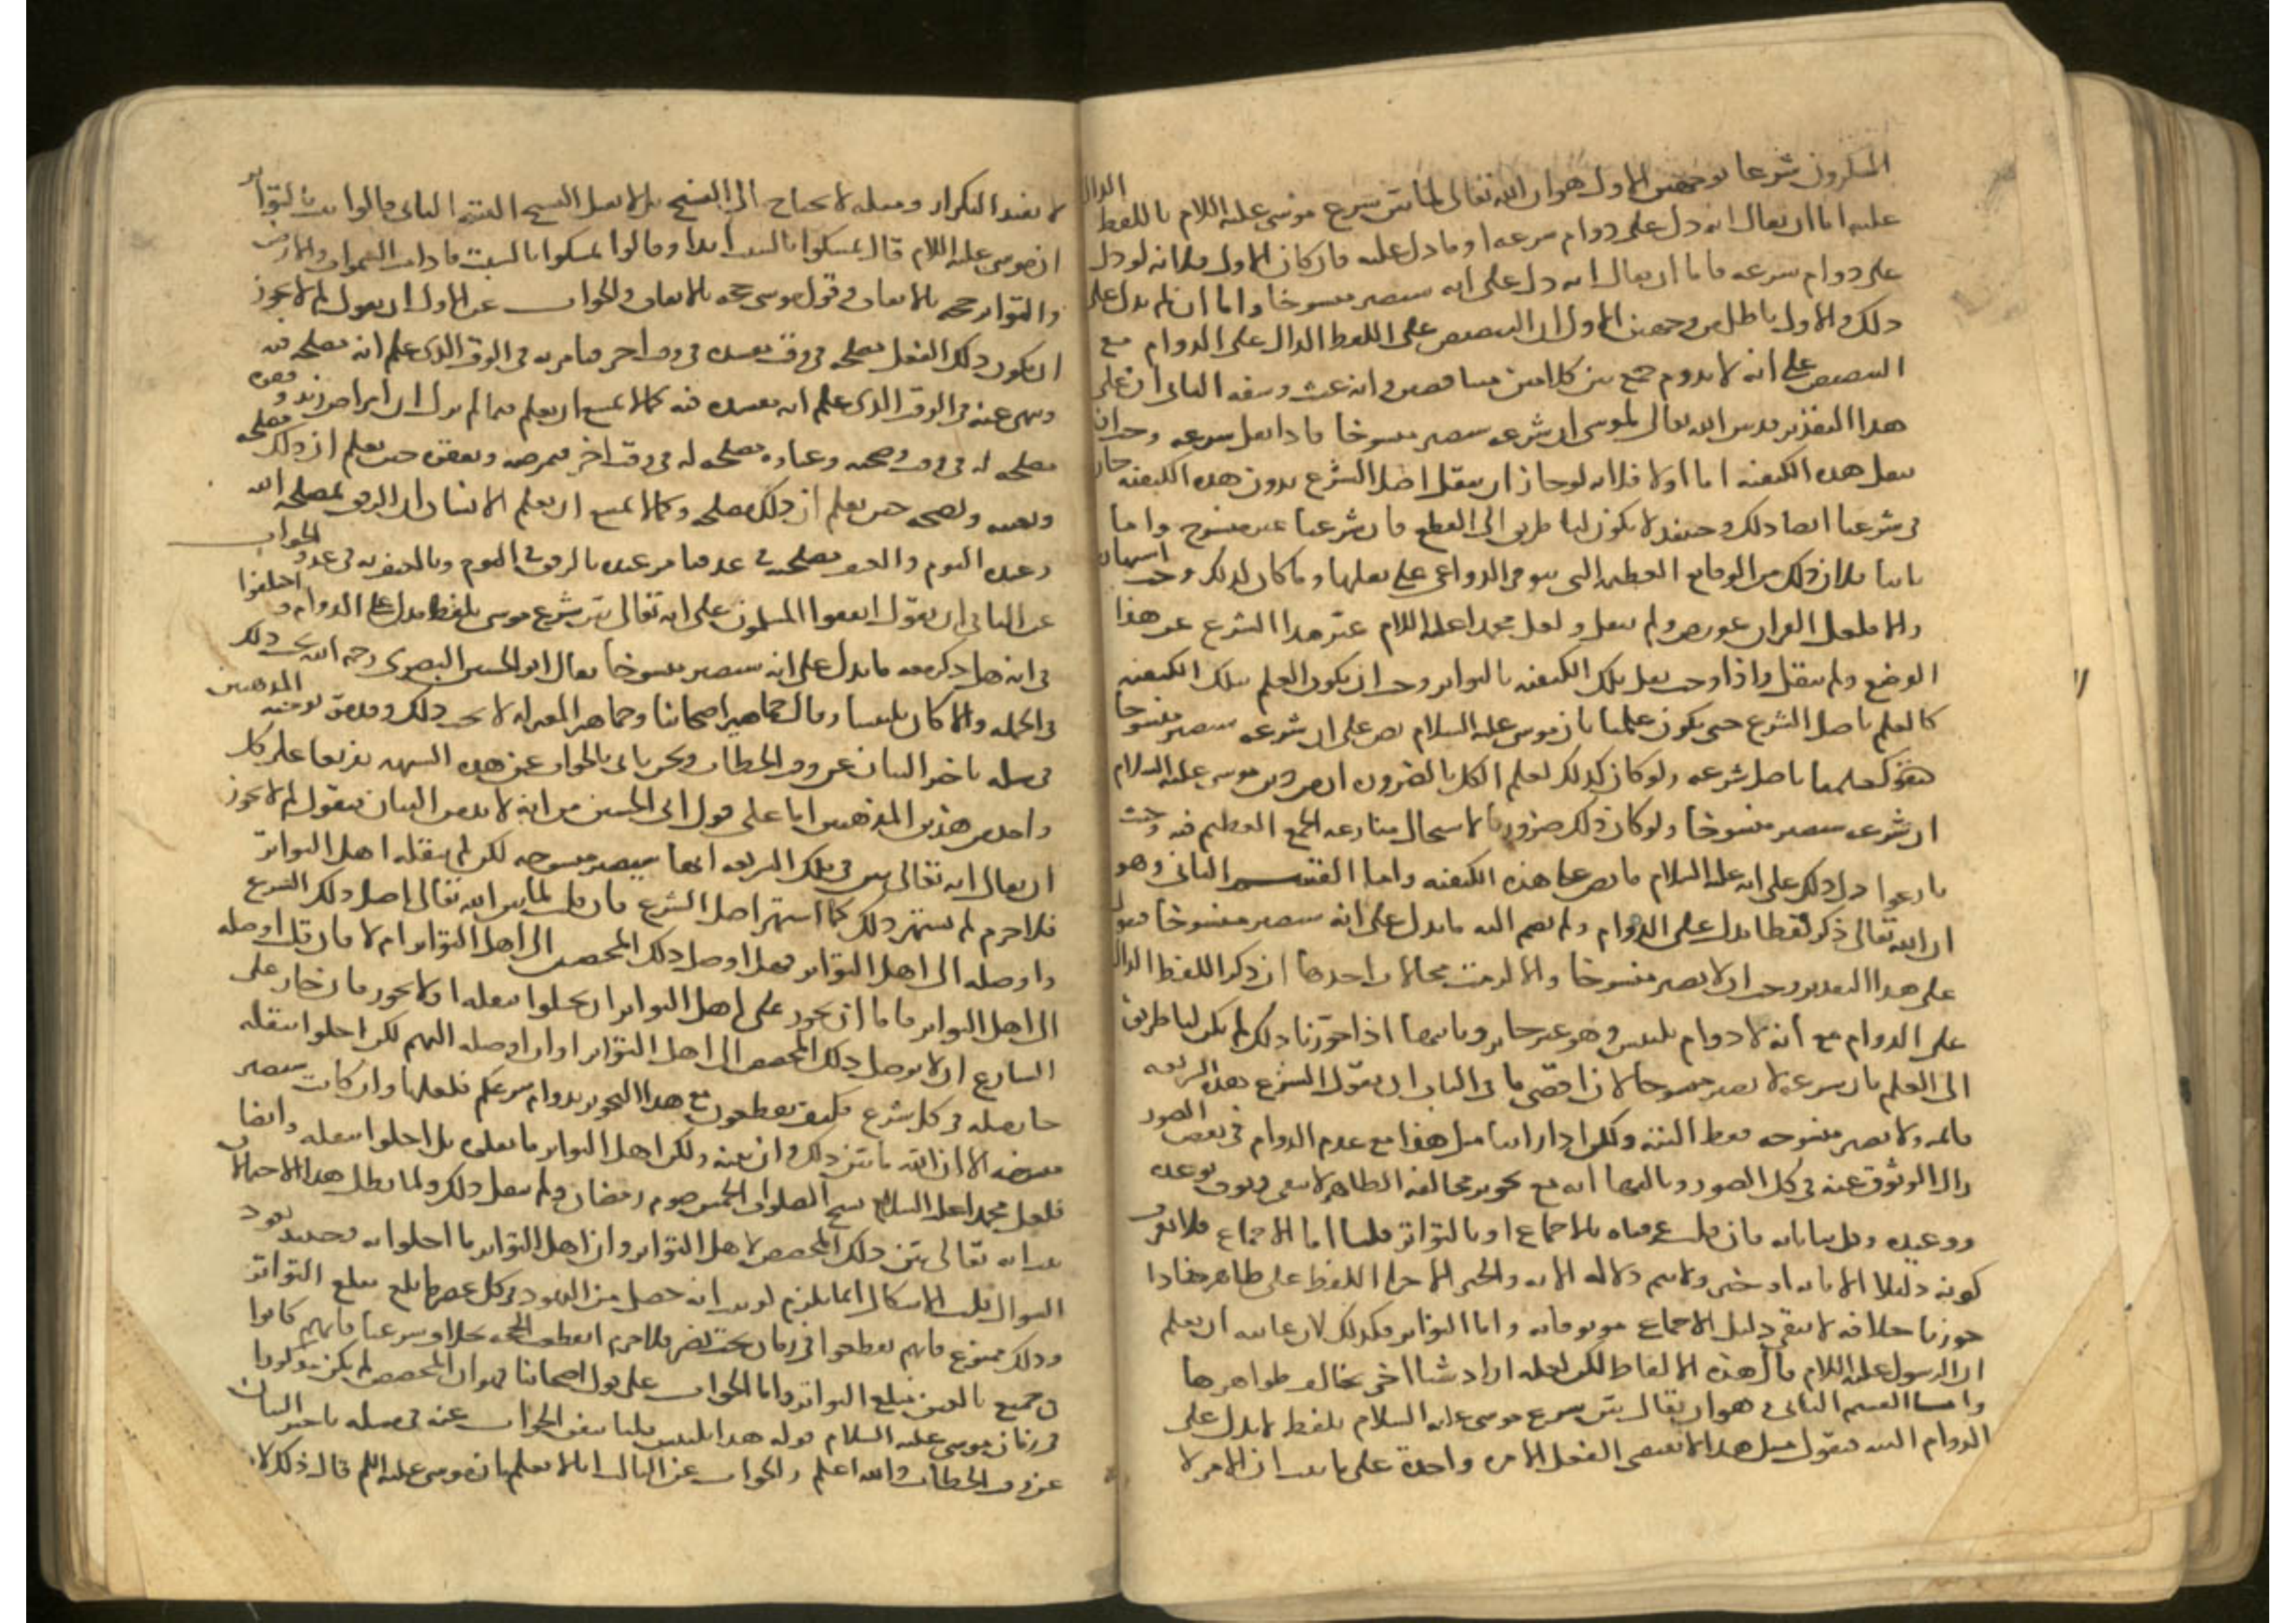 المنكرون شرعا بوجهين الاول هو ان الله تعالى لما بين شرع موسى عليه اللام باللفظ الدال
عليه اما ان يقال انه دل على دوام شرعه او ما دل عليه فان كان الاول فلانه لو دل
على دوام شرعه فاما ان يقال انه دل على انه سيصير منسوخا واما ان لم يدل على
ذلك والاول باطل من وجهين الاول ان التنصيص على اللفظ الدال على الدوام مع
التنصيص على انه لا يدوم جمع بين كلامين متناقضين وانه عبث وسفه الثاني ان على
هذا التقدير قد بين الله تعالى لموسى ان شرعه سيصير منسوخا فاذا نقل شرعه وجب ان
ينقل هذه الكيفية اما اولا فلانه لو جاز ان ينقل اصل الشرع بدون هذه الكيفية جاز
في شرعنا ايضا ذلك وحينئذ لا يكون لنا طريق الى القطع فان شرعنا غير منسوخ واما
ثانيا فلان ذلك من الوقائع العظيمة التي تتوفر الدواعي على نقلها وما كان كذلك وجب اشتهاره
والا فلعل القران عورض ولم ينقل ولعل محمدا عليه اللام غير هذا الشرع عن هذا
الوضع ولم ينقل واذا وجب نقل تلك الكيفية بالتواتر وجب ان يكون العلم بتلك الكيفية
كالعلم باصل الشرع حتى يكون علمنا بان موسى عليه السلام نص على ان شرعه سيصير منسوخا
كعلمنا باصل شرعه ولو كان كذلك لعلم الكل بالضرورة ان من دين موسى عليه السلام
ان شرعه سيصير منسوخا ولو كان ذلك ضروريا لاستحال منازعة الجمع العظيم فيه وحيث
نازعوا دل ذلك على انه عليه السلام ما نص على هذه الكيفية واما القسم الثاني وهو
ان الله تعالى ذكر لفظا يدل على الدوام ولم يضم اليه ما يدل على انه سيصير منسوخا فنقول
على هذا التقدير وجب ان لا يصير منسوخا والا لزمت محالات احدها ان ذكر اللفظ الدال
على الدوام مع انه لا دوام تلبيس وهو غير جائز وثانيها اذا جوزنا ذلك لم يكن لنا طريق
الى العلم بان شرعه لا يصير منسوخا لان اقصى ما في الباب ان يقول الشرع هذه الشريعة
دائمة ولا تصير منسوخة قط البتة ولكن اذا راينا مثل هذا مع عدم الدوام في بعض الصور
زال الوثوق عنه في كل الصور وثالثها انه مع تجويز مخالفة الظاهر لا يبقى وثوق بوعده
ووعيده وكل بياناته فان قلت عرفناه بالاجماع او بالتواتر قلنا اما الاجماع فلا نعرف
كونه دليلا الا باية او خبر ولا تتم دلالة الاية والخبر الا باجراء اللفظ على ظاهره فاذا
جوزنا خلافه لا يبقى دليل الاجماع موثوقا به واما التواتر فكذلك لان غايته ان يعلم
ان الرسول عليه اللام قال هذه الالفاظ لكن لعله اراد شيئا اخر يخالف ظواهرها
واما القسم الثاني وهو ان يقال بين شرع موسى عليه السلام بلفظ لا يدل على
الدوام البتة فنقول مثل هذا لا يقتضي الفعل الا مرة واحدة على ما ثبت ان الامر لا
لا يفيد التكرار ومثله لا يحتاج الى النسخ بل لا يقبل النسخ البتة الثاني قالوا ثبت بالتواتر
ان موسى عليه اللام قال تمسكوا بالسبت ابدا وقالوا تمسكوا بالسبت ما دامت السموات والارض
والتواتر حجة بالاتفاق وقول موسى حجة بالاتفاق والجواب عن الاول ان نقول لم لا يجوز
ان يكون ذلك الفعل مصلحة في وقت مفسدة في وقت اخر فيامر به في الوقت الذي علم انه مصلحة فيه
وينهى عنه في الوقت الذي علم انه مفسدة فيه كما لا يمتنع ان يعلم فيما لم يزل ان امراض زيد وفقره
مصلحة له في وقت وصحته وغناه مصلحة له في وقت اخر فيمرضه ويفقره حين يعلم ان ذلك مصلحة
ويغنيه ويصحه حين يعلم ان ذلك مصلحة وكما لا يمتنع ان يعلم الانسان ان الرفق مصلحة ابنه
وعبده اليوم والعنف مصلحته في غد فيامر عبده بالرفق في اليوم وبالعنف به في غد والجواب
عن الثاني ان نقول اتفقوا المسلمون على انه تعالى بين شرع موسى بلفظ يدل على الدوام واختلفوا
في انه هل ذكر معه ما يدل على انه سيصير منسوخا فقال ابو الحسين البصري رحمه الله يجب ذلك
في الجملة والا كان تلبيسا وقال جماهير اصحابنا وجماهير المعتزلة لا يجب ذلك وقد مر توجيه المذهبين
في مسئلة تاخير البيان عن وقت الخطاب ونحن ناتي بالجواب عن هذه الشبهة تفريعا على كل
واحد من هذين المذهبين اما على قول ابي الحسين من انه لا بد من البيان فنقول لم لا يجوز
ان يقال انه تعالى بين في تلك الشريعة انها ستصير منسوخة لكن لم ينقله اهل التواتر
فلا جرم لم يشتهر ذلك كما اشتهر اصل الشرع فان قلت لما بين الله تعالى اصل ذلك الشرع
واوصله الى اهل التواتر فهل اوصل ذلك المخصص الى اهل التواتر ام لا فان قلت اوصله
الى اهل التواتر فاما ان يجوز على اهل التواتر ان يخلوا بنقله او لا يجوز فان جاز على
الشارع ان لا يوصل ذلك المخصص الى اهل التواتر او ان اوصله اليهم لكن اخلوا بنقله
جاز مثله في كل شرع فكيف تقطعون مع هذا التجويز بدوام شرعكم فلعلها وان كانت ستصير
منسوخة الا ان الله ما بين ذلك وان بينه ولكن اهل التواتر ما نقلوه بل اخلوا بنقله وايضا
فلعل محمدا عليه السلام نسخ الصلوات الخمس وصوم رمضان ولم ينقل ذلك ولما بطل هذا الاحتمال
ثبت انه تعالى بين ذلك المخصص لاهل التواتر وان اهل التواتر ما اخلوا به وحينئذ يعود
السوال قلت الاشكال انما يلزم لو ثبت انه حصل من اليهود في كل عصر ما بلغ مبلغ التواتر
وذلك ممنوع فانهم انقطعوا في زمان بخت نصر فلا جرم انقطعت الحجة بخلاف شرعنا فانهم كانوا
في جميع بالغين مبلغ التواتر واما الجواب على قول اصحابنا فهو ان المخصص لم يكن مذكورا
في زمان موسى عليه السلام قوله هذا تلبيس قلنا سبق الجواب عنه في مسئلة تاخير البيان
عن وقت الخطاب والله اعلم والجواب عن الثالث انا لا نعلم بان موسى عليه اللم قال ذلك لان